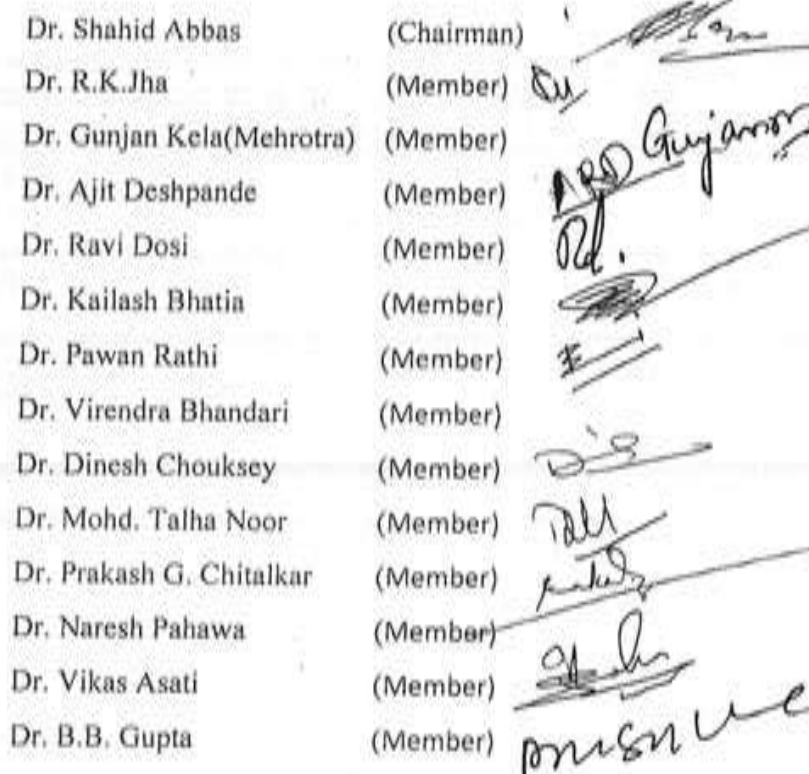 Dr. Shahid Abbas (Chairman)
Dr. R.K.Jha (Member)
Dr. Gunjan Kela(Mehrotra) (Member)
Dr. Ajit Deshpande (Member)
Dr. Ravi Dosi (Member)
Dr. Kailash Bhatia (Member)
Dr. Pawan Rathi (Member)
Dr. Virendra Bhandari (Member)
Dr. Dinesh Chouksey (Member)
Dr. Mohd. Talha Noor (Member)
Dr. Prakash G. Chitalkar (Member)
Dr. Naresh Pahawa (Member)
Dr. Vikas Asati (Member)
Dr. B.B. Gupta (Member)